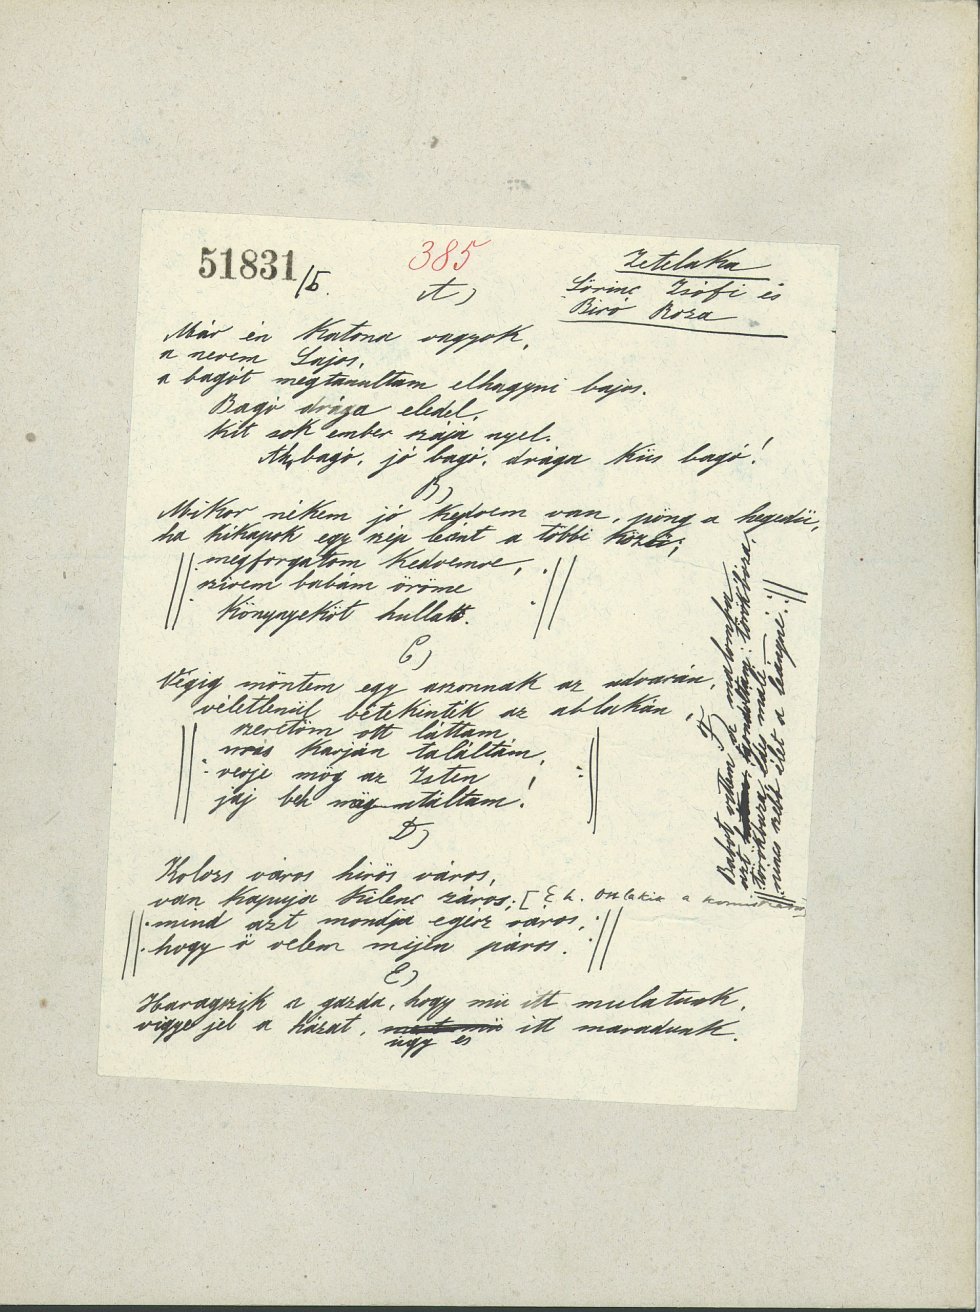 51831/5.
385
Zetelaka
Lörinc Zsófi és
Biró Roza
A)
Már én katona vagyok,
a nevem Lajos,
a bagót megtanultam elhagyni bajos.
Bagó drága eledel,
kit sok ember szája nyel.
Ah, bagó, jó bagó, drága kiis bagó!
B)
Mikor nékem jó kedvem van, pöng a hegedü,
ha kikapok egy szép leánt a többi közü,
megforgatom kedvemre,
szivem babám öröme
könynyeköt hullatt.
C)
Végig möntem egy asszonnak az udvarán,
véletlenül bétekinték az ablakán
szeretöm ott láttam
más karján találtam,
verje mög az Isten
jaj beh mög utáltam!
D)
Kolozs város hirös város,
van kapuja kilenc záros, [
mind azt mondja egész város,
hogy ö velem mijen páros.
E)
Haragszik a gazda, hogy mü itt mulatunk,
vigye jel a házat, itt maradunk.
úgy es
F)
Babot vettem de malomba
azt gondoltam: törökbúza,
törökbuza, édes máli
nincs szebb élet a leányné.